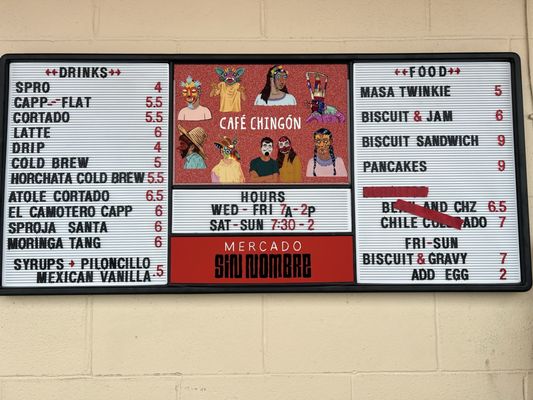 DRINKS
SPRO 4
CAPP-FLAT 5.5
CORTADO 5.5
LATTE 6
DRIP 4
COLD BREW 5
HORCHATA COLD BREW 5.5
ATOLE CORTADO 6.5
EL CAMOTERO CAPP 6
SPROJA SANTA 6
MORINGA TANG 6
SYRUPS + PILONCILLO
MEXICAN VANILLA .5
CAFÉ CHINGÓN
HOURS
WED-FRI 7A-2P
SAT-SUN 7:30-2
MERCADO
SIN NOMBRE
FOOD
MASA TWINKIE 5
BISCUIT & JAM 6
BISCUIT SANDWICH 9
PANCAKES 9
AND CHZ 6.5
CHILE COLORADO 7
FRI-SUN
BISCUIT & GRAVY 7
ADD EGG 2